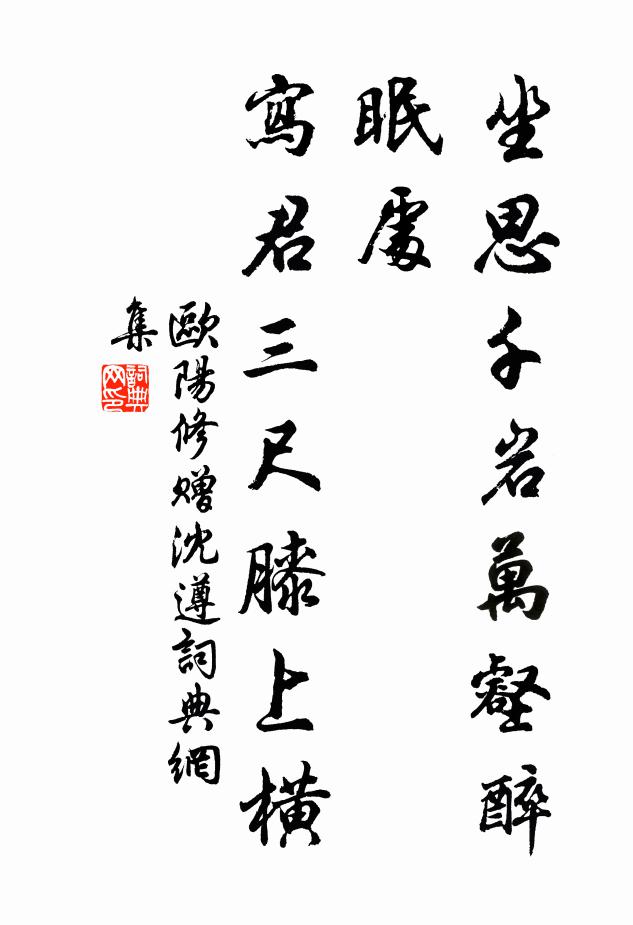 坐思千岩萬壑醉
眠處
寫君三尺膝上橫
歐陽修贈沈遵詞典網
集
詞典
网印